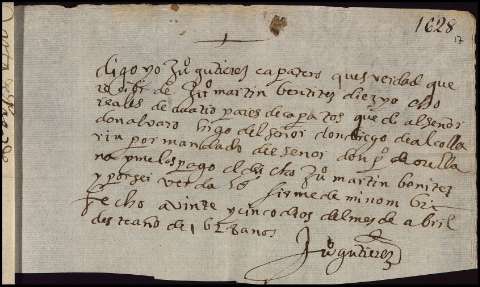 1628
17
digo yo Juº gutierez capatero ques verdad que
recibi de Juº martin benites diez y ocho
reales de cuatro pares de capatos que di al señor
don alvaro higo del señor don diego de alcolla
rin por mandado del señor don pº de orella
na y me los pago el dicho Juº martin benites
y por ser verda lo firme de mi nombre
fecho a vinte y cinco dias del mes de abril
deste año de 1628 anos
Juº gutierez